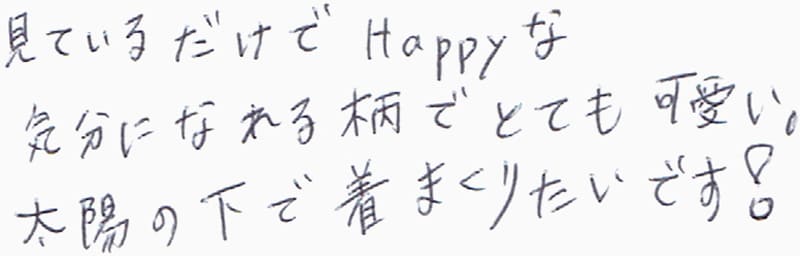 見ているだけでHappyな
気分になれる柄でとても可愛い。
太陽の下で着まくりたいです!